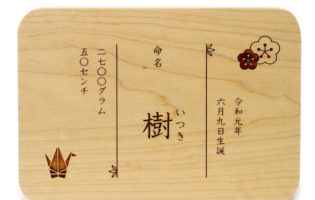 令和元年
六月九日生誕
命名
樹
いつき
二七〇〇グラム
五〇センチ